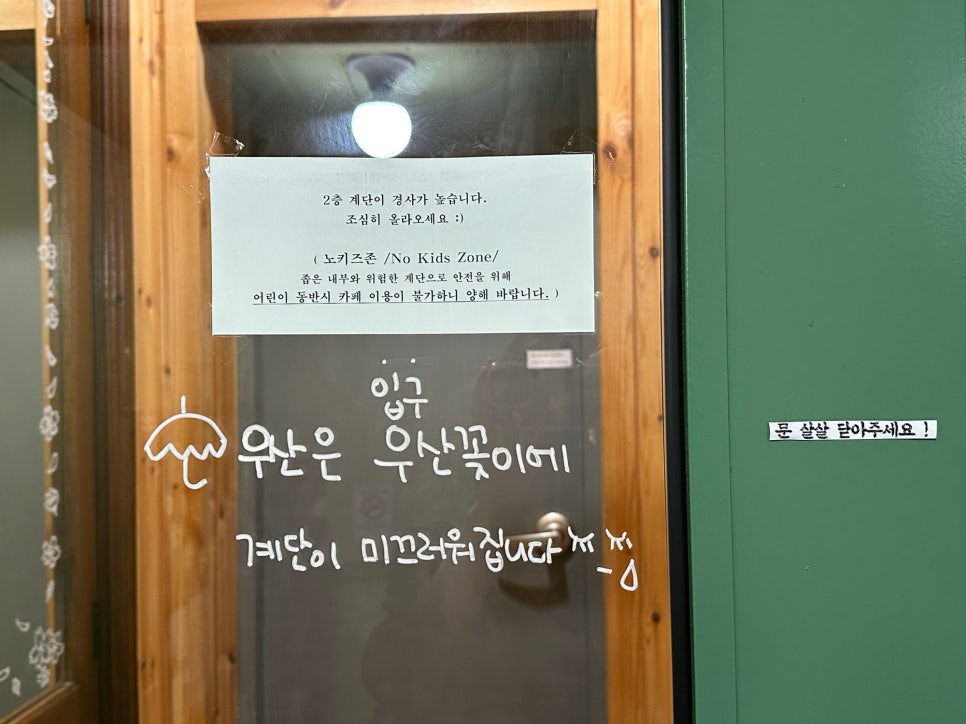 2층 계단이 경사가 높습니다.
조심히 올라오세요 :)
( 노키즈존 /No Kids Zone/
좁은 내부와 위험한 계단으로 안전을 위해
어린이 동반시 카페 이용이 불가하니 양해 바랍니다. )
입구
우산은 우산꽂이에
계단이 미끄러워집니다
문 살살 닫아주세요 !